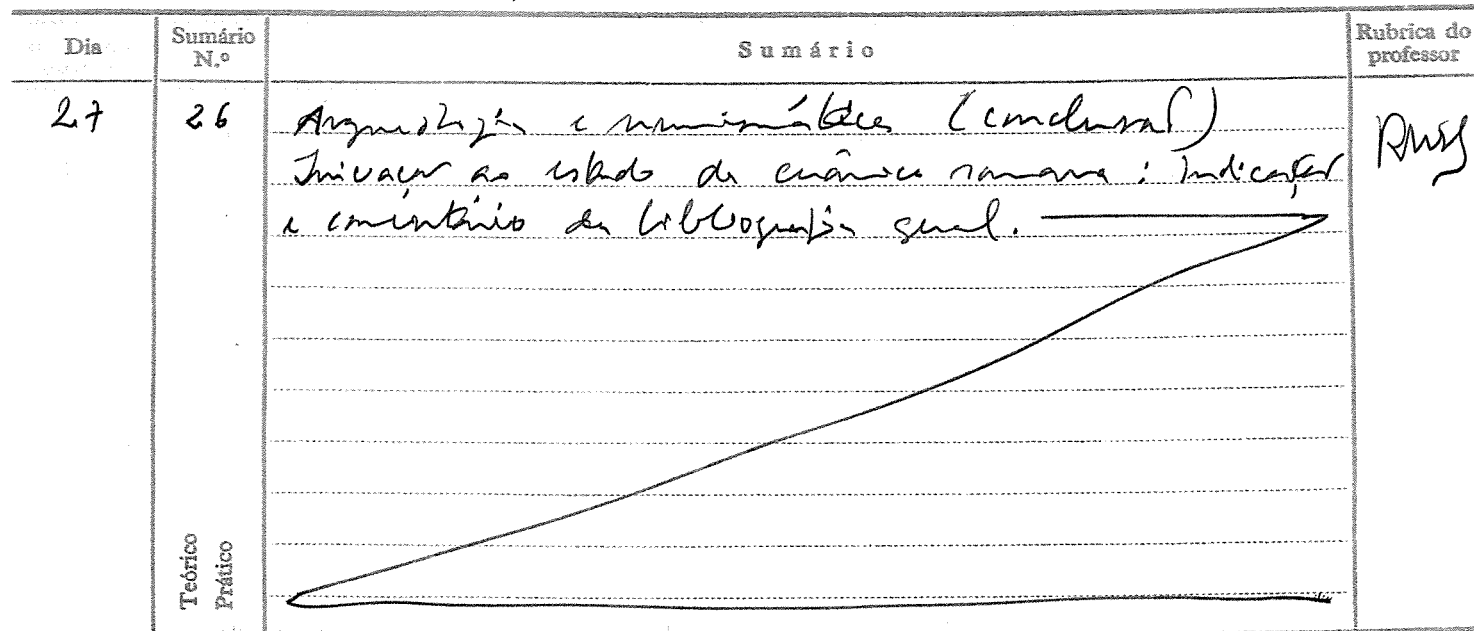 Dia
Sumário N.º
Sumário
Rubrica do professor
27
26
Arqueologia e numismática (conclusão)
Iniciação ao estudo da cerâmica romana: Indicação
e comentário da bibliografia geral.
Teórico
Prático